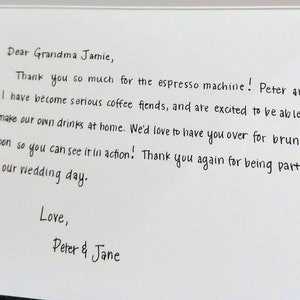 Dear Grandma Jamie,
Thank you so much for the espresso machine! Peter
I have become serious coffee fiends, and are excited to be able
make our own drinks at home. We'd love to have you over for
so you can see it in action! Thank you again for being part
our wedding day.
Love,
Peter & Jane